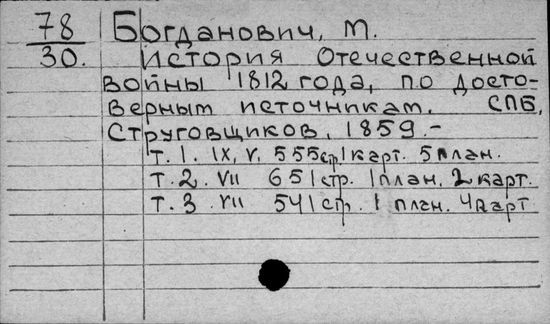 78
30.
Богданович, М.
История Отечественной
войны 1812 года, по досто-
верным источникам. СПБ,
Струговщиков, 1859.-
т. 1. IX, V. 555стр. 1 карт. 5план.
т. 2. VII 651стр. 1план. 2карт.
т. 3 VII 541стр. 1 план. 4карт